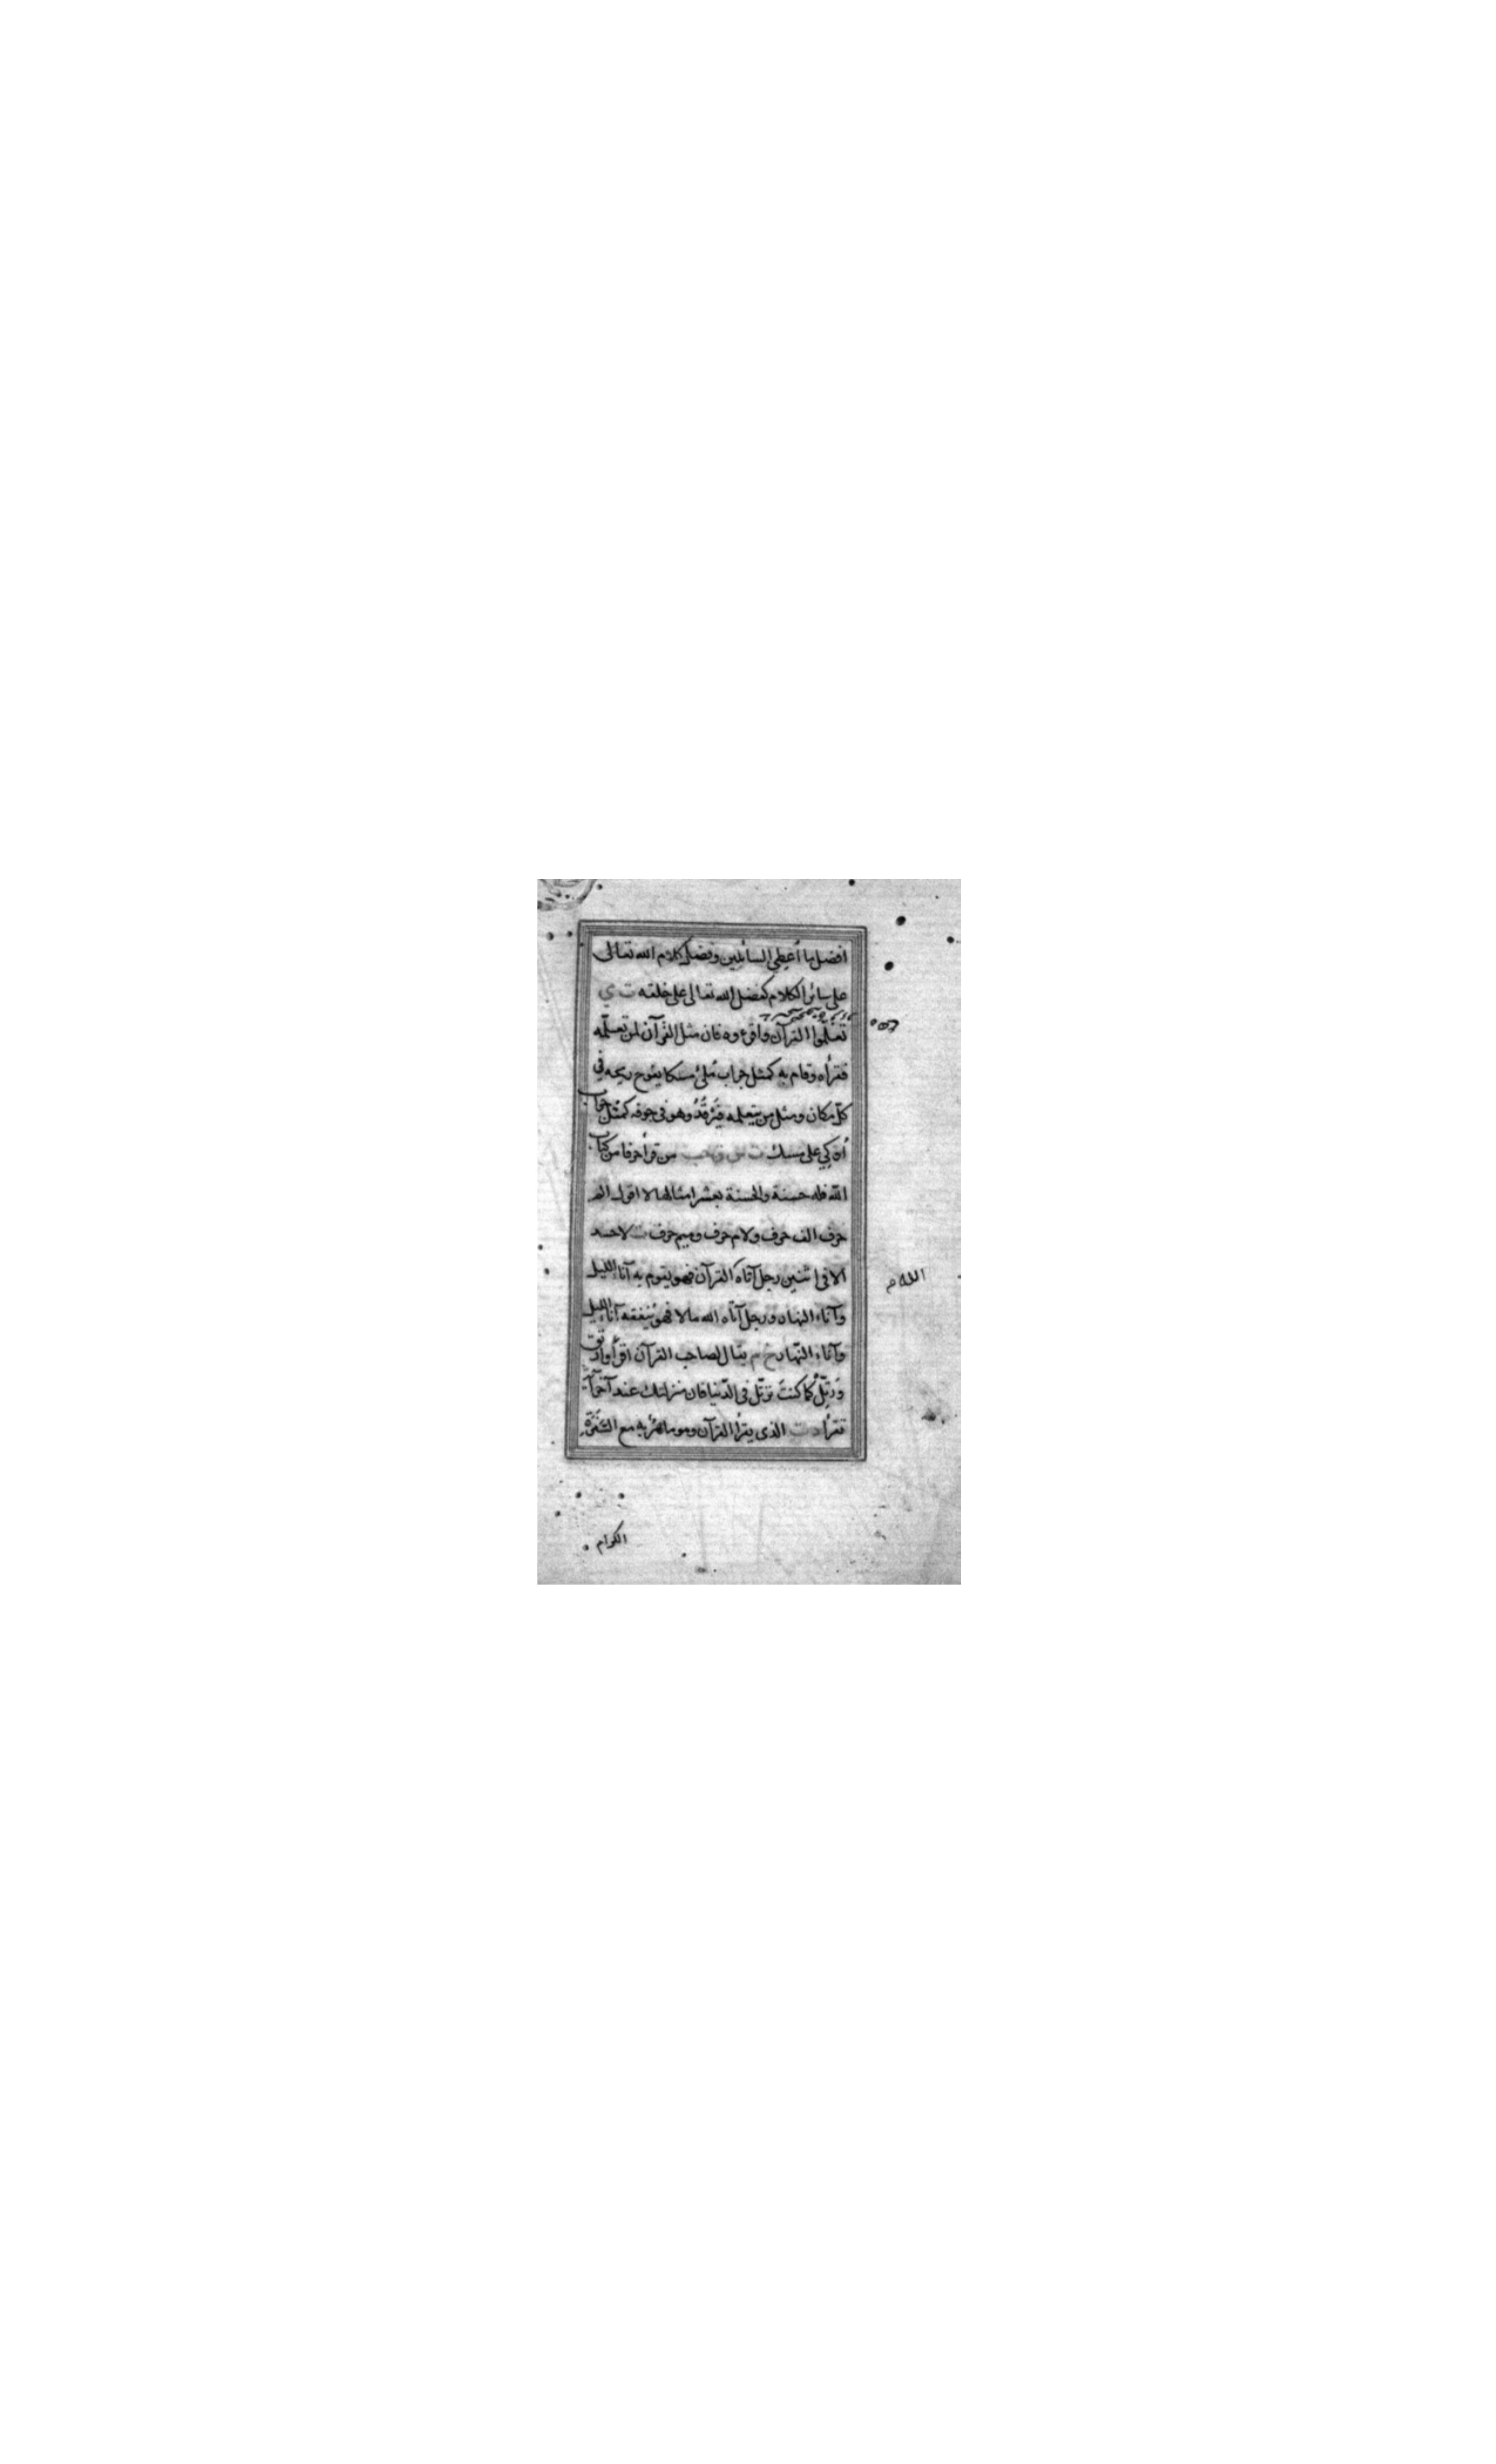 افضل ما أعطي السائلين وفضل كلام الله تعالى
على سائر الكلام كفضل الله تعالى على خلقه ت ي
تعلّموا القرآن واقرءوه فان مثل القرآن لمن تعلّمه
فقرأه وقام به كمثل جراب ملئ مسكا يفوح ريحه في
كلّ مكان ومثل من يتعلمه فيرقد وهو في جوفه كمثل جراب
أوكي على مسك ت س ق حب من قرأ حرفا من كتاب
الله فله حسنة والحسنة بعشر امثالها لا اقول الم
حرف الف حرف ولام حرف وميم حرف ت لا حسد
الا في اثنين رجل آتاه القرآن فهو يقوم به آناء الليل
وآناء النهار ورجل آتاه الله مالا فهو ينفقه آناء الليل
وآناء النّهار خ م يقال لصاحب القرآن اقرأ وارتق
ورتّل كما كنت ترتّل في الدّنيا فان منزلتك عند آخر آية
تقرأ د ت الذي يقرأ القرآن وهو ماهر به مع السّفرة
الله م
الكرام